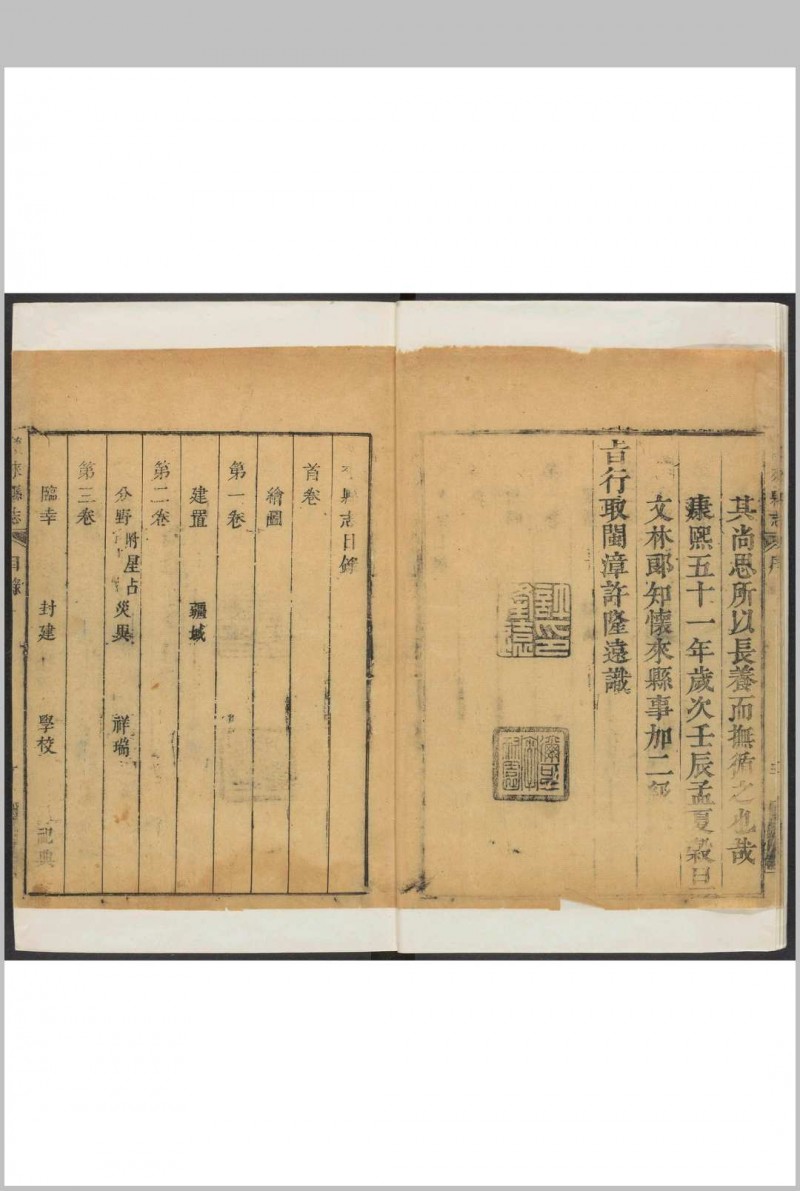 其尚思所以長養而撫循之也哉
康熙五十一年歲次壬辰孟夏穀旦
文林郎知懷來縣事加二級
㫖行取閩漳許隆遠識
縣志目錄
首卷
繪圖
第一卷
建置 疆域
第二卷
分野附星占 災異 祥瑞
第三卷
臨幸 封建 學校 祀典
來縣志 目錄